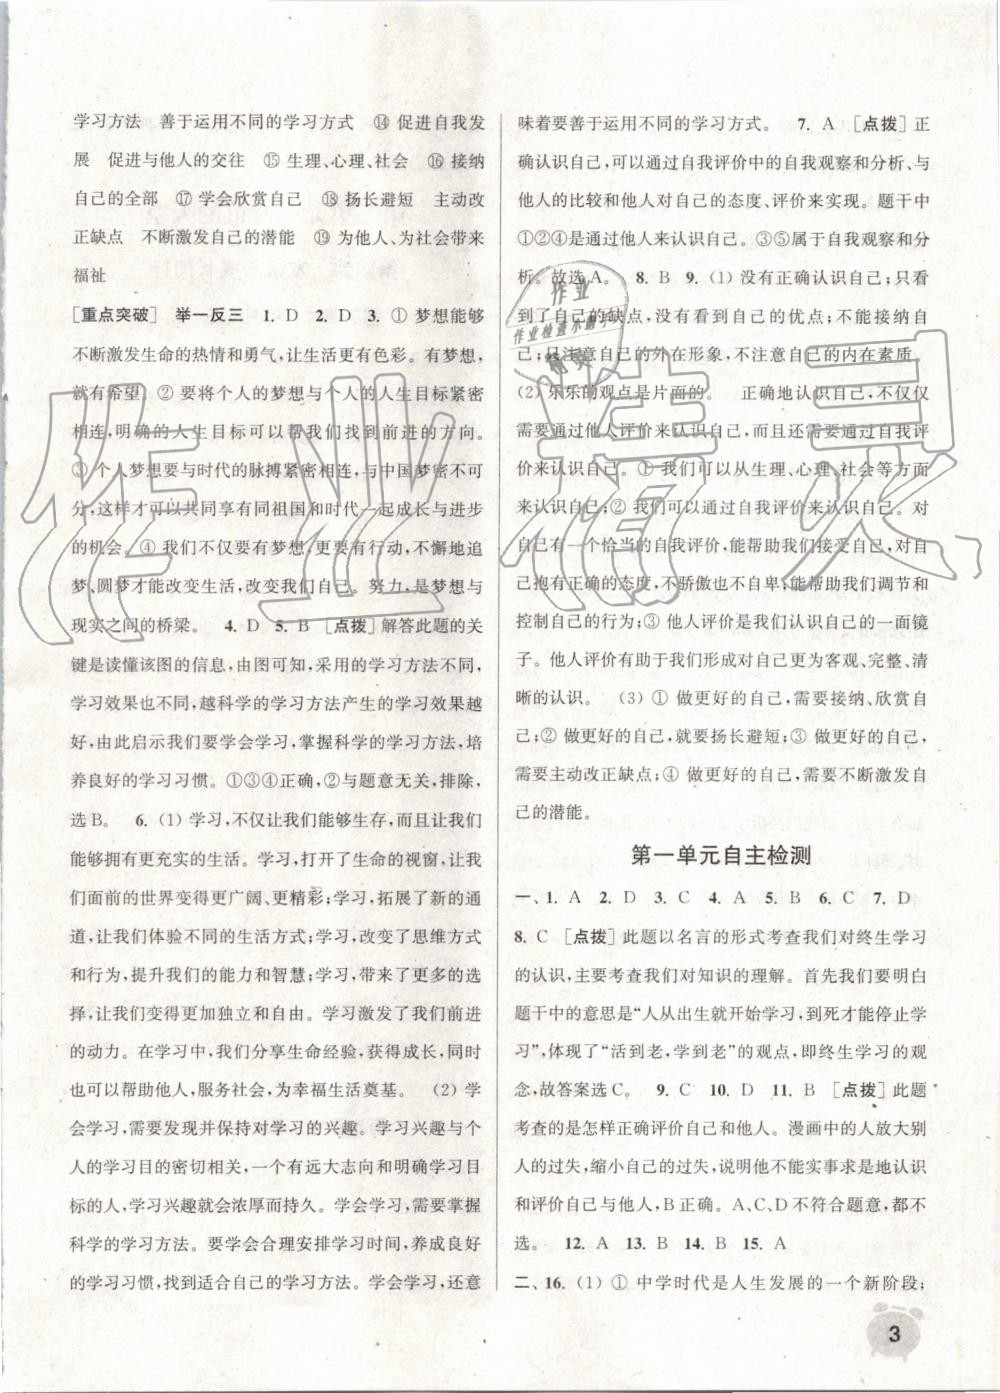 学习方法　善于运用不同的学习方式　⑭ 促进自我发
展　促进与他人的交往　⑮ 生理、心理、社会　⑯ 接纳
自己的全部　⑰ 学会欣赏自己　⑱ 扬长避短　主动改
正缺点　不断激发自己的潜能　⑲ 为他人、为社会带来
福祉
[重点突破]　举一反三　1. D　2. D　3. ① 梦想能够
不断激发生命的热情和勇气,让生活更有色彩。有梦想,
就有希望。② 要将个人的梦想与个人的人生目标紧密
相连,明确的人生目标可以帮我们找到前进的方向。
③ 个人梦想要与时代的脉搏紧密相连,与中国梦密不可
分,这样才可以共同享有同祖国和时代一起成长与进步
的机会。④ 我们不仅要有梦想,更要有行动,不懈地追
梦、圆梦才能改变生活,改变我们自己。努力,是梦想与
现实之间的桥梁。　4. D　5. B　[点拨] 解答此题的关
键是读懂该图的信息,由图可知,采用的学习方法不同,
学习效果也不同,越科学的学习方法产生的学习效果越
好,由此启示我们要学会学习,掌握科学的学习方法,培
养良好的学习习惯。①③④正确,②与题意无关,排除,
选B。　6. (1) 学习,不仅让我们能够生存,而且让我们
能够拥有更充实的生活。学习打开了生命的视窗,让我
们面前的世界变得更广阔、更精彩;学习,拓展了新的通
道,让我们体验不同的生活方式;学习,改变了思维方式
和行为,提升我们的能力和智慧;学习,带来了更多的选
择,让我们变得更加独立和自由。学习激发了我们前进
的动力。在学习中,我们分享生命经验,获得成长,同时
也可以帮助他人,服务社会,为幸福生活奠基。　(2) 学
会学习,需要发现并保持对学习的兴趣。学习兴趣与个
人的学习目的密切相关,一个有远大志向和明确学习目
标的人,学习兴趣就会浓厚而持久。学会学习,需要掌握
科学的学习方法。要学会合理安排学习时间,养成良好
的学习习惯,找到适合自己的学习方法。学会学习,还意
味着要善于运用不同的学习方式。　7. A　[点拨] 正
确认识自己,可以通过自我评价中的自我观察和分析、与
他人的比较和他人对自己的态度、评价来实现。题干中
①②④是通过他人来认识自己。③⑤属于自我观察和分
析。故选A。　8. B　9. (1) 没有正确认识自己;只看
到了自己的缺点,没有看到自己的优点;不能接纳自
己;只注意自己的外在形象,不注意自己的内在素质。
(2) 乐乐的观点是片面的。　正确地认识自己,不仅仅
需要通过他人评价来认识自己,而且还需要通过自我评
价来认识自己。① 我们可以从生理、心理、社会等方面
来认识自己,也可以通过自我评价来认识自己。② 对
自己有一个恰当的自我评价,能帮助我们认识自己,对自
己抱有正确的态度,不骄傲也不自卑,能帮助我们调节和
控制自己的行为;③ 他人评价是我们认识自己的一面镜
子。他人评价有助于我们形成对自己更为客观、完整、清
晰的认识。　(3) ① 做更好的自己,需要接纳、欣赏自
己;② 做更好的自己,就要扬长避短;③ 做更好的自己,
需要主动改正缺点;④ 做更好的自己,需要不断激发自
己的潜能。
第一单元自主检测
一、1. A　2. D　3. C　4. A　5. B　6. C　7. D
8. C　[点拨] 此题以名言的形式考查我们对终生学习
的认识,主要考查我们对知识的理解。首先我们要明白
题干中的意思是“人从出生就开始学习,到死才能停止学
习”,体现了“活到老,学到老”的观点,即终生学习的观
念,故答案选C。　9. C　10. D　11. B　[点拨] 此题
考查的是怎样正确评价自己和他人。漫画中的人放大别
人的过失,缩小自己的过失,突出了不能实事求是地认识
和评价自己与他人,B正确。A、C、D不符合题意,都不
选。　12. A　13. B　14. B　15. A
二、16. (1) ① 中学时代是人生发展的一个新阶段;
3
作业
作业检查小助手
精灵
作业精灵